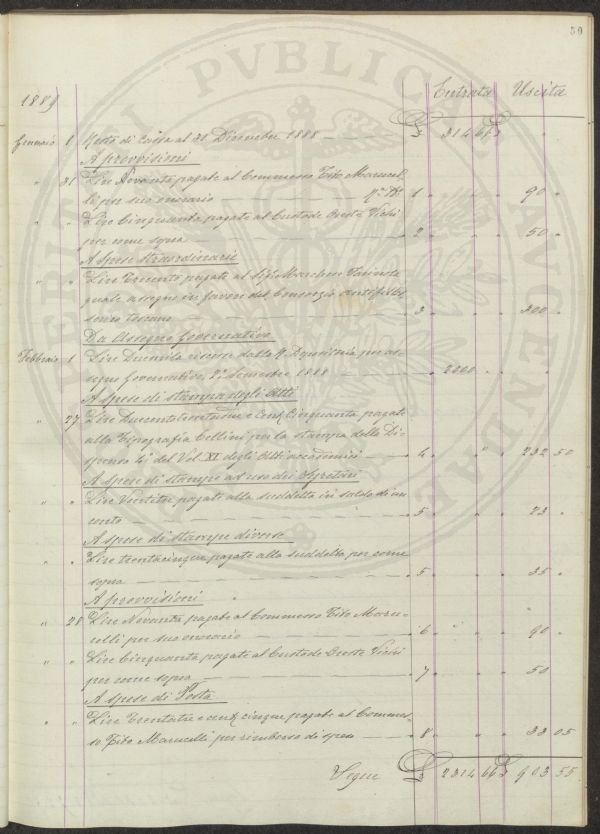 50
Entrata Uscita
1889
Gennaio 1 Resto di Cassa al 31 Dicembre 1888 £ 314 66 £ "
A provvisioni
" 31 Lire Novanta pagate al Commesso Tito Marucel-
li per suo onorario 1 " " " 90 "
" " Lire Cinquanta pagate al Custode Oreste Vichi
per come sopra " 2 " " " 50 "
A Spese straordinarie
" " Lire Trecento pagate al Sig. Marchese
quale assegno in favore del Consorzio antifillos-
serico toscano " 3 " " " 300 "
Da Assegno Governativo
Febbraio 1 Lire Duemila riscosse dalla R. Depositeria per as-
segno Governativo, 2° Semestre 1888 " 2000 " " " "
A Spese di stampa degli Atti
" 27 Lire Duecentotrentadue e Cent. Cinquanta pagate
alla Tipografia Cellini per la stampa della Di-
spensa 4a del Vol. XI degli Atti accademici " 4 " " " 232 50
A spese di stampe ad uso dei Segretari
" " Lire Ventitre pagate alla suddetta in saldo di un
conto " 5 " " " 23 "
A spese di Stampe diverse
" " Lire trentacinque pagate alla suddetta per come
sopra " 5 " " " 35 "
A provvisioni
" 28 Lire Novanta pagate al Commesso Tito Maru-
celli per suo onorario " 6 " " " 90 "
" " Lire Cinquanta pagate al Custode Oreste Vichi
per come sopra " 7 " " " 50 "
A spese di Posta
" " Lire Trentatre e cent. cinque pagate al Commes-
so Tito Marucelli per rimborso di spese " 8 " " " 33 05
Segue £ 2314 66 £ 903 55